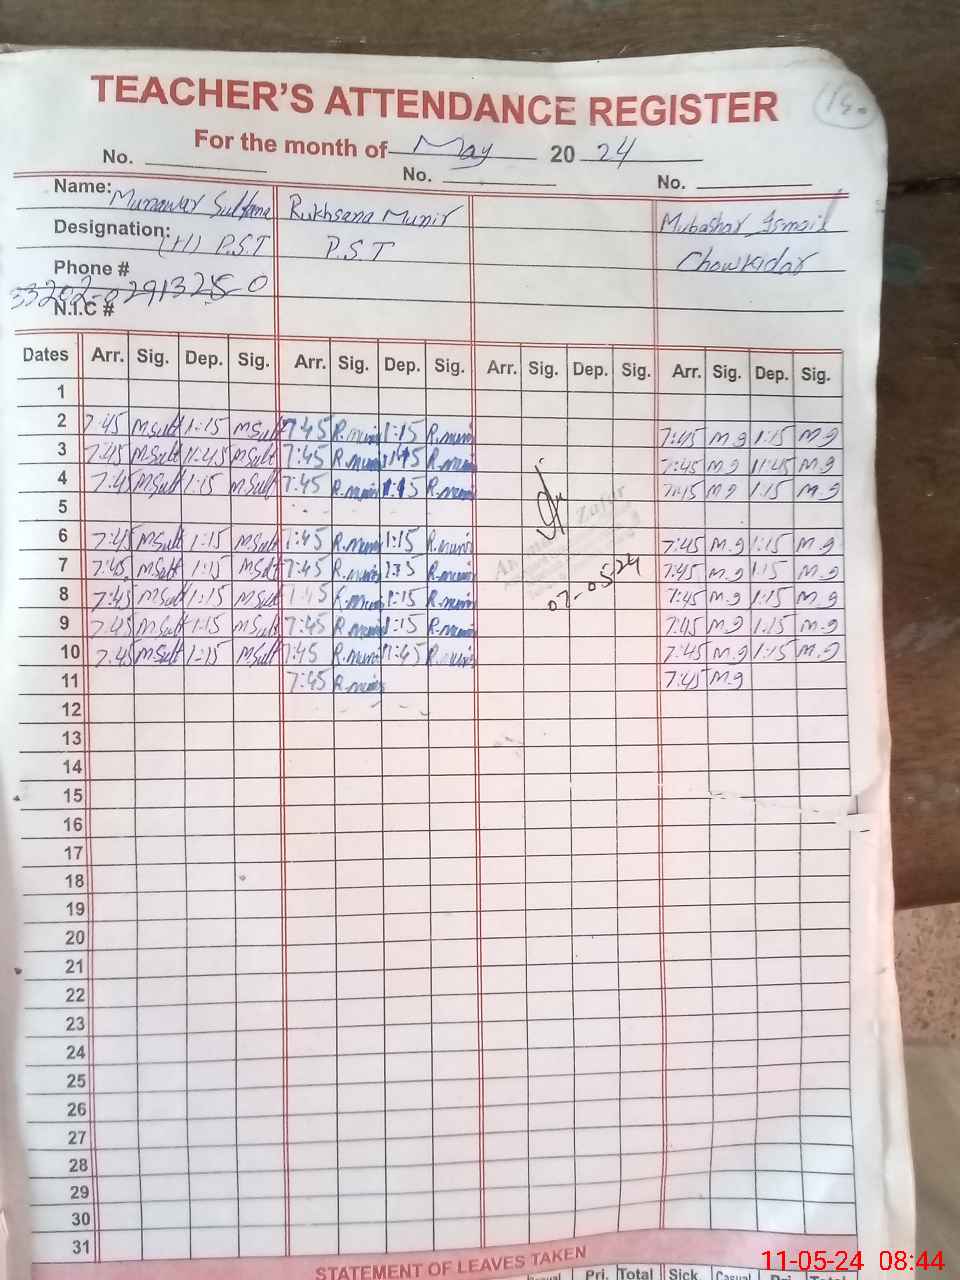 TEACHER'S ATTENDANCE REGISTER
For the month of May 2024
No. No. No.
Name: Munawar Sultana Rukhsana Munir Mubashar Ismail
Designation: (H) P.S.T P.S.T Chowkidar
Phone #
N.I.C #
Dates Arr. Sig. Dep. Sig. Arr. Sig. Dep. Sig. Arr. Sig. Dep. Sig. Arr. Sig. Dep. Sig.
1
2 7:45 MSult 1:15 MSult 7:45 R.munir 1:15 R.munir 7:45 M.g 1:15 M.g
3 7:45 MSult 11:45 MSult 7:45 R.munir 11:45 R.munir 7:45 M.g 11:45 M.g
4 7:45 MSult 1:15 MSult 7:45 R.munir 1:15 R.munir 7:45 M.g 1:15 M.g
5 Zafar
6 7:45 MSult 1:15 MSult 7:45 R.munir 1:15 R.munir 7:45 M.g 1:15 M.g
7 7:45 MSult 1:15 MSult 7:45 R.munir R.munir 07-05-24 7:45 M.g 1:15 M.g
8 7:45 MSult 1:15 MSult 7:45 R.munir 1:15 R.munir 7:45 M.g 1:15 M.g
9 7:45 MSult 1:15 MSult 7:45 R.munir 1:15 R.munir 7:45 M.g 1:15 M.g
10 7:45 MSult 1:15 MSult 7:45 R.munir R.munir 7:45 M.g 1:15 M.g
11 7:45 R.munir 7:45 M.g
12
13
14
15
16
17
18
19
20
21
22
23
24
25
26
27
28
29
30
31
STATEMENT OF LEAVES TAKEN
Pri. Total Sick. Casual
11-05-24 08:44